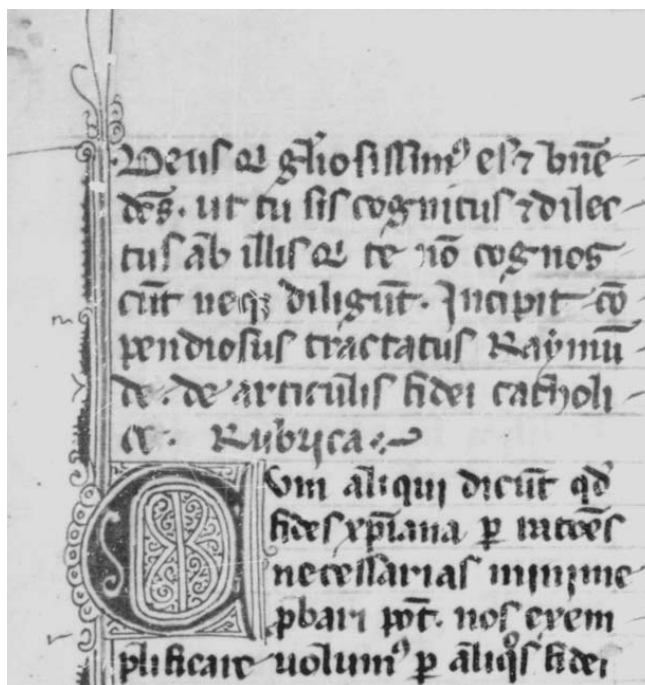 Deus q̅ gl̅iosissim⁹ es ⁊ b̅n̅e
de̅s. ut tu sis cognitus ⁊ dilec
tus ab illis q̅ te no̅ cognos
cu̅t neq̅ꝫ diligu̅t. Incipit co̅
pendiosus tractatus Raymu̅
de. de articulis fidei catholi
ce. Rubrica.
Cum aliqui dicu̅t qd̅
fides xp̅iana p̲ rat̅o̅es
necessarias minime
p̲bari po̅t. nos exem
plificare volum⁹ p̲ aliqͦs fidei